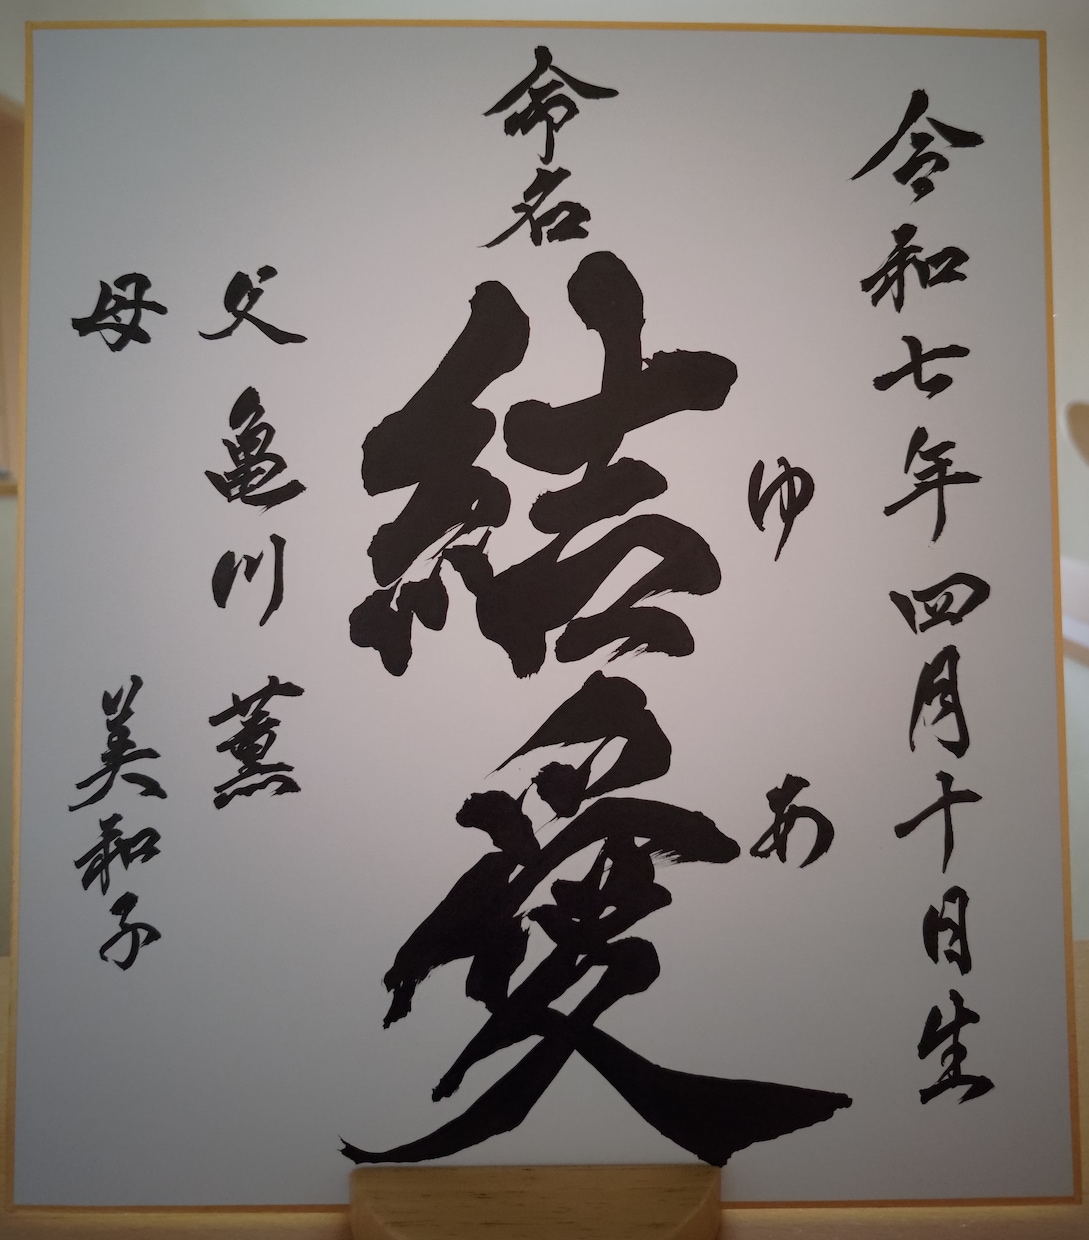 令和七年四月十日生
命名
結愛
ゆあ
父 亀川 薫
母 美和子